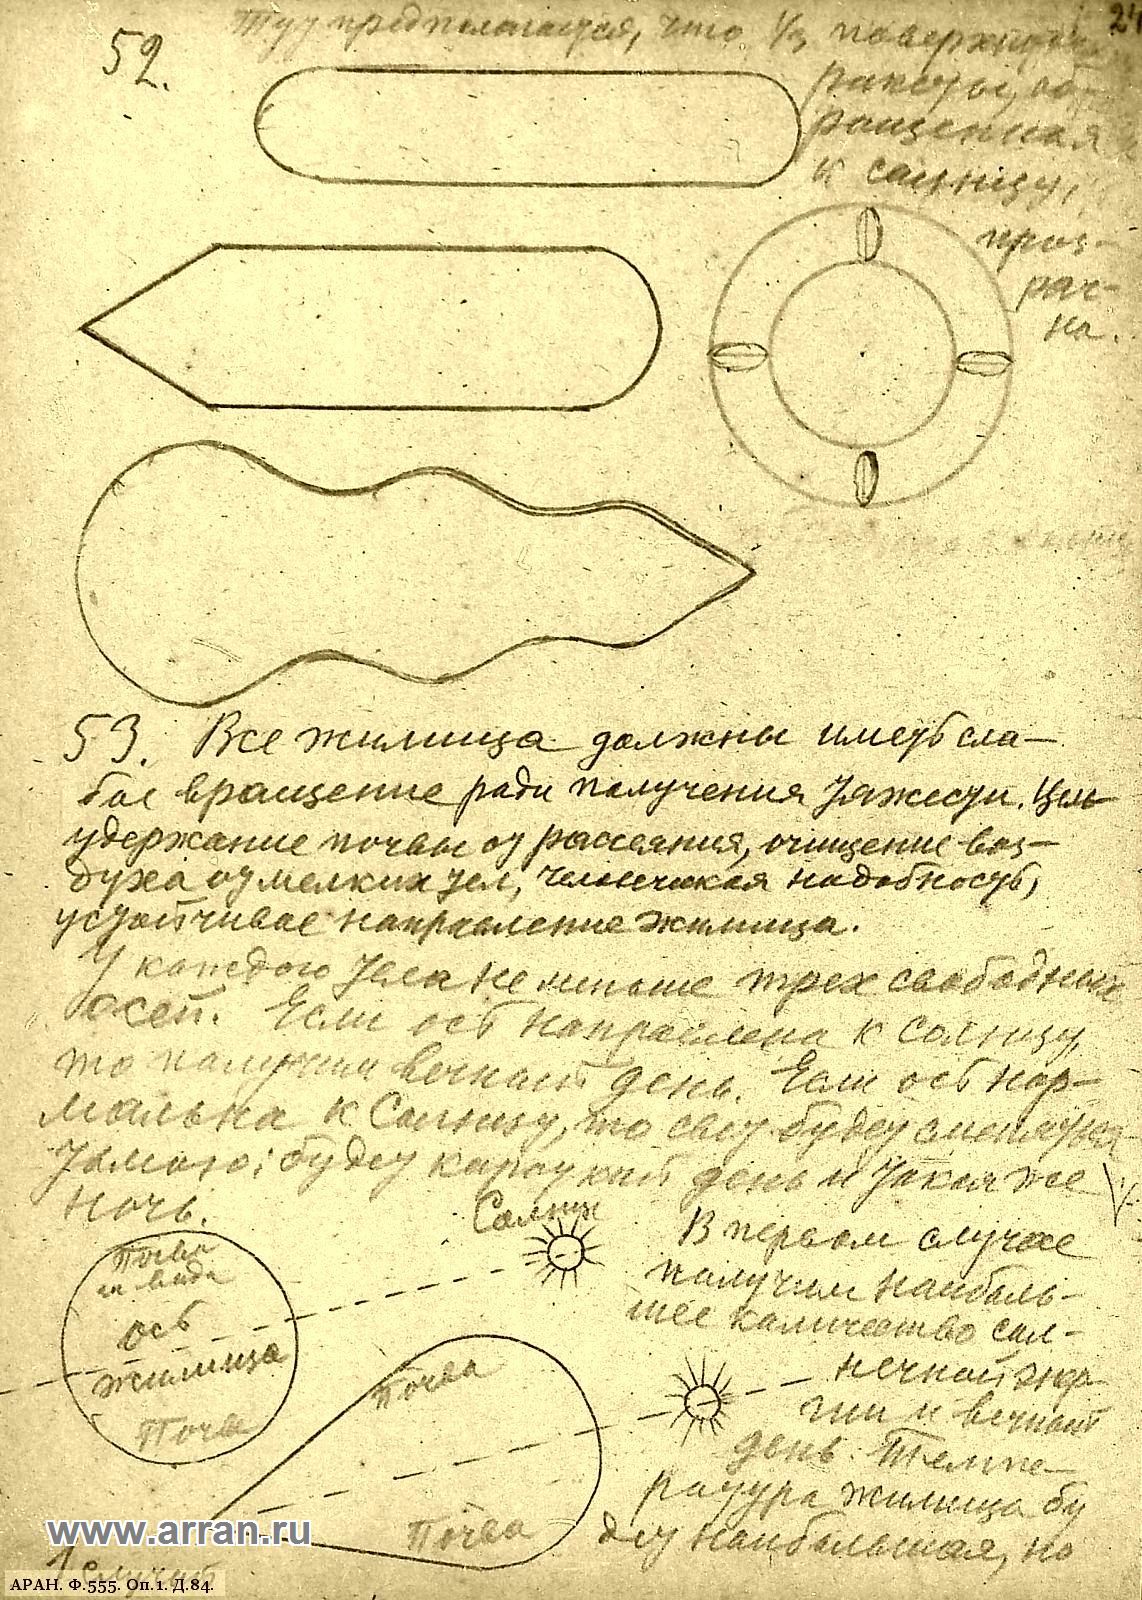 24
52.
Тут предполагается, что 1/3 поверхности
ракеты, об-
ращенная
к солнцу,
проз-
рач-
на.
53. Все жилища должны иметь сла-
бое вращение ради получения тяжести. Цель
удержание почвы от рассеяния, очищение воз-
духа от мелких тел, человеческая надобность,
устойчивое направление жилища.
У каждого тела не меньше трех свободных
осей. Если ось направлена к солнцу,
то получим вечный день. Если ось нор-
мальна к Солнцу, то свет будет сменяться
тьмою; будет короткий день и такая же
ночь.
Солнце
Почва
и вода
ось
жилища
Почва
В первом случае
получим наиболь-
шее количество сол-
нечной энер-
гии и вечный
день. Темпе-
ратура жилища бу
дет наибольшая, но
Почва
Почва
1 случай
www.arran.ru
АРАН. Ф.555. Оп.1. Д.84.